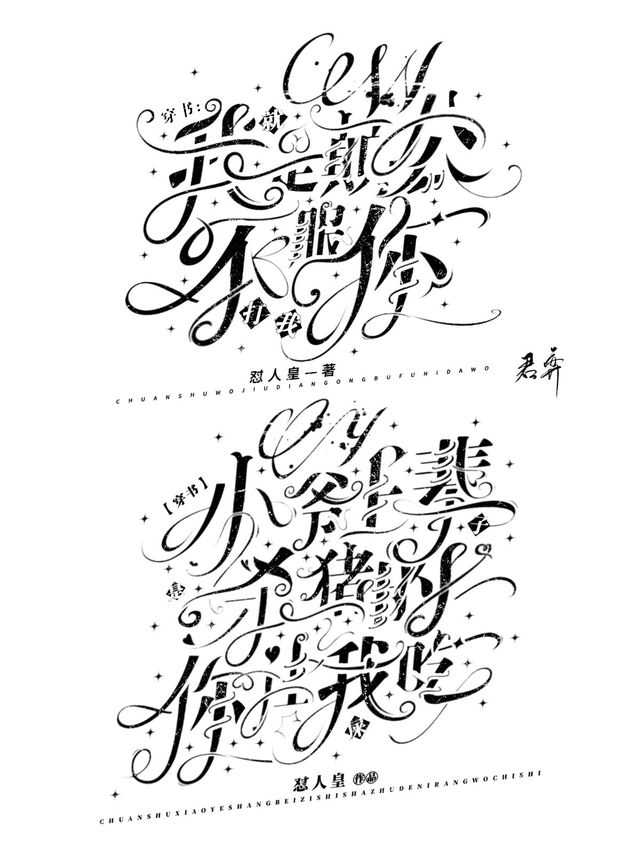 穿书:
我就是颠公
不服你
打我
怼人皇—著
CHUANSHUWOJIUDIANGONGBUFUNIDAWO
【穿书】
小爷上辈子
是杀猪的
你让我吃屎
怼人皇 作品
CHUANSHUXIAOYESHANGBEIZISHISHAZHUDENIRANGWOCHISHI